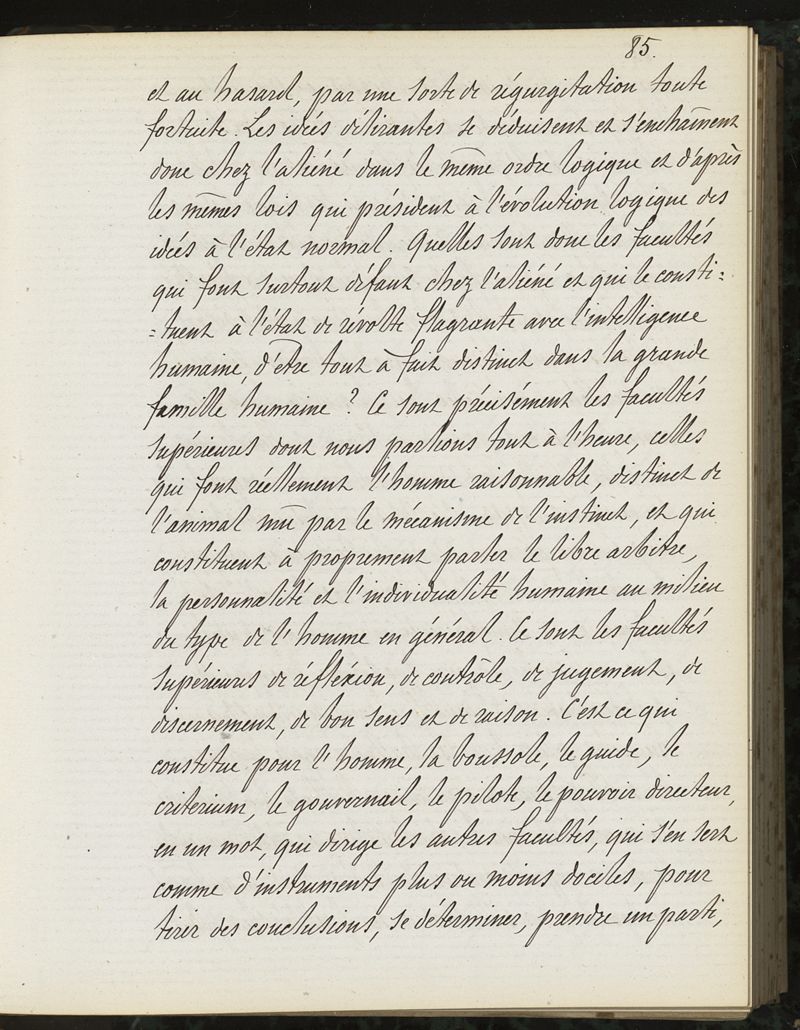 85.
et au hasard, par une sorte de régurgitation toute
fortuite. Les idées délirantes se déduisent et s'enchaînent
donc chez l'aliéné dans le même ordre logique et d'après
les mêmes lois qui président à l'évolution logique des
idées à l'état normal. Quelles sont donc les facultés
qui font surtout défaut chez l'aliéné et qui le consti=
=tuent à l'état de révolte flagrante avec l'intelligence
humaine, d'être tout à fait distinct dans la grande
famille humaine ? Ce sont précisément les facultés
supérieures dont nous parlions tout à l'heure, celles
qui font réellement l'homme raisonnable, distinct de
l'animal mû par le mécanisme de l'instinct, et qui
constituent à proprement parler le libre arbitre,
la personnalité et l'individualité humaine au milieu
du type de l'homme en général. Ce sont les facultés
supérieures de réfléxion, de contrôle, de jugement, de
discernement, de bon sens et de raison. C'est ce qui
constitue pour l'homme, la boussole, le guide, le
criterium, le gouvernail, le pilote, le pouvoir directeur,
en un mot, qui dirige les autres facultés, qui s'en sert
comme d'instruments plus ou moins dociles, pour
tirer des conclusions, se déterminer, prendre un parti,